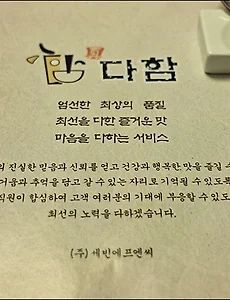 다함
엄선한 최상의 품질
최선을 다한 즐거운 맛
마음을 다하는 서비스
의 진실한 믿음과 신뢰를 얻고 건강과 행복한 맛을 즐길 수
거움과 추억을 담고 갈 수 있는 자리로 기억될 수 있도록
직원이 합심하여 고객 여러분의 기대에 부응할 수 있도
최선의 노력을 다하겠습니다.
(주) 세빈에프엔씨